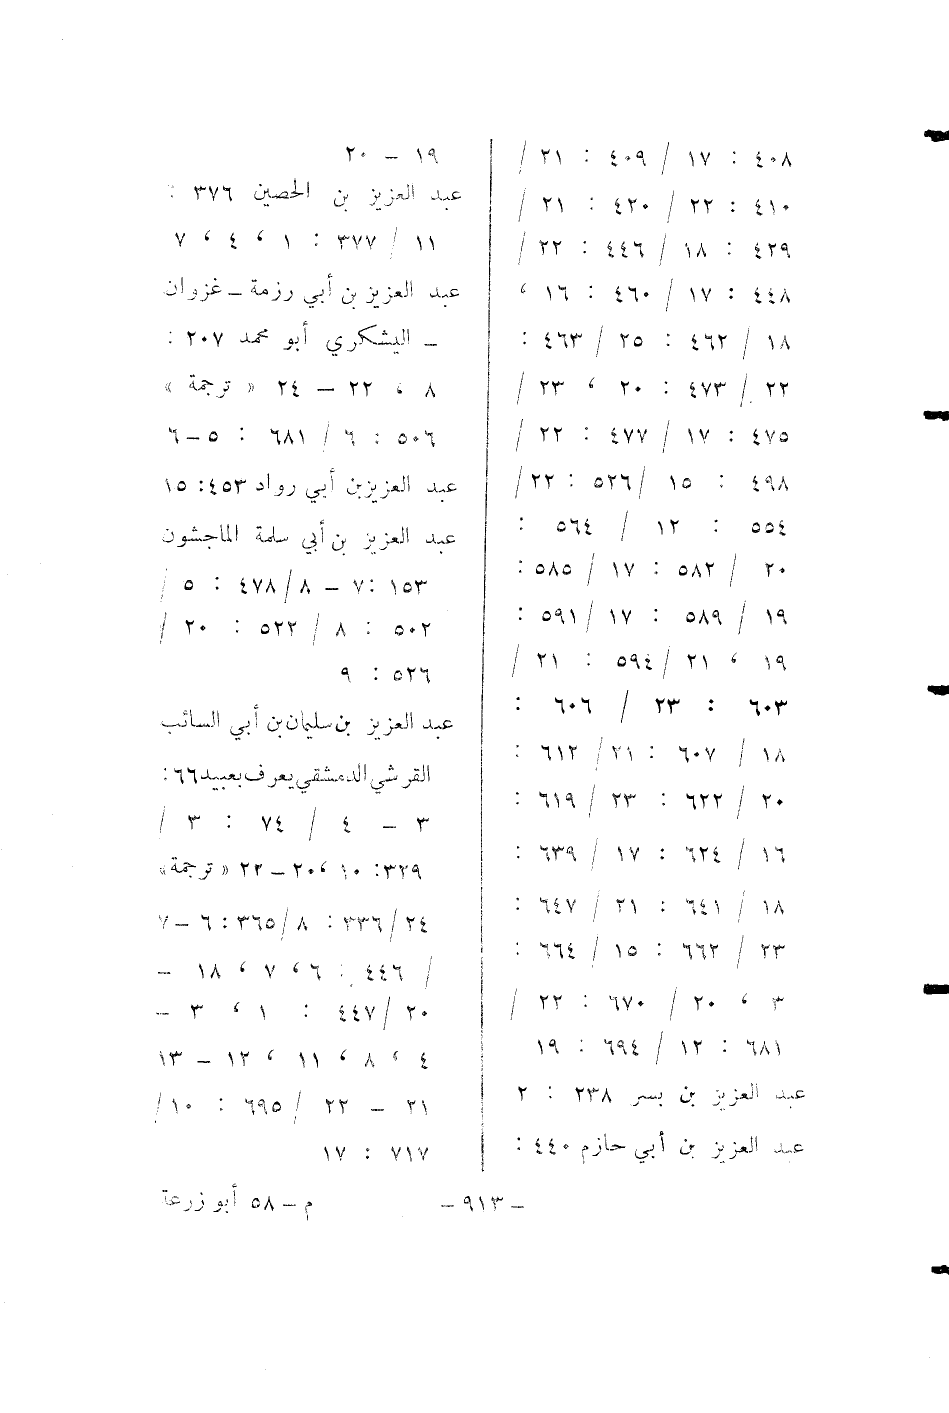 ٤٠٨ : ١٧ / ٤٠٩ : ٢١ /
٤١٠ : ٢٢ / ٤٢٠ : ٢١ /
٤٢٩ : ١٨ / ٤٤٦ : ٢٢ /
٤٤٨ : ١٧ / ٤٦٠ : ١٦ ،
١٨ / ٤٦٢ : ٢٥ / ٤٦٣ :
٢٢ / ٤٧٣ : ٢٠ ، ٢٣ /
٤٧٥ : ١٧ / ٤٧٧ : ٢٢ /
٤٩٨ : ١٥ / ٥٢٦ : ٢٢ /
٥٥٤ : ١٢ / ٥٦٤ :
٢٠ / ٥٨٢ : ١٧ / ٥٨٥ :
١٩ / ٥٨٩ : ١٧ / ٥٩١ :
١٩ ، ٢١ / ٥٩٤ : ٢١ /
٦٠٣ : ٢٣ / ٦٠٦ :
١٨ / ٦٠٧ : ٢١ / ٦١٢ :
٢٠ / ٦٢٢ : ٢٣ / ٦١٩ :
١٦ / ٦٢٤ : ١٧ / ٦٣٩ :
١٨ / ٦٤١ : ٢١ / ٦٤٧ :
٢٣ / ٦٦٢ : ١٥ / ٦٦٤ :
٣ ، ٢٠ / ٦٧٠ : ٢٢ /
٦٨١ : ١٢ / ٦٩٤ : ١٩
عبد العزيز بن بسر ٢٣٨ : ٢
عبد العزيز بن أبي حازم ٤٤٠ :
١٩ – ٢٠
عبد العزيز بن الحصين ٣٧٦ :
١١ / ٣٧٧ : ١ ، ٤ ، ٧
عبد العزيز بن أبي رزمة – غزوان
– اليشكري أبو محمد ٢٠٧ :
٨ ، ٢٢ – ٢٤ « ترجمة »
٥٠٦ : ٦ / ٦٨١ : ٥–٦
عبد العزيزبن أبي رواد ٤٥٣ : ١٥
عبد العزيز بن أبي سلمة الماجشون
١٥٣ : ٧ – ٨ / ٤٧٨ : ٥ /
٥٠٢ : ٨ / ٥٢٢ : ٢٠ /
٥٢٦ : ٩
عبد العزيز بن سليمان بن أبي السائب
القرشي الدمشقي يعرف بعبيد ٦٦ :
٣ – ٤ / ٧٤ : ٣ /
٣٢٩ : ١٠ ، ٢٠ – ٢٢ « ترجمة »
٢٤ / ٣٣٦ : ٨ / ٣٦٥ : ٦ – ٧
/ ٤٤٦ : ٦ ، ٧ ، ١٨ –
٢٠ / ٤٤٧ : ١ ، ٣ –
٤ ، ٨ ، ١١ ، ١٢ – ١٣
٢١ – ٢٢ / ٦٩٥ : ١٠ /
٧١٧ : ١٧
– ٩١٣ –
م – ٥٨ أبو زرعة